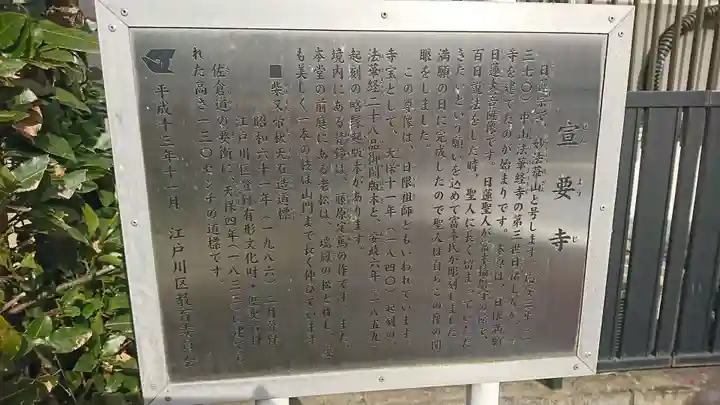 宣要寺
せんようじ
日蓮宗で、妙法華山と号します。
三七〇）中山法華経寺の第三世日祐
寺を建てたのが始まりです。本尊は、日限高祖
日蓮大菩薩像です。日蓮聖人が
百日説法をした時、聖人に長く留まっていただ
きたいという願いを込めて富木氏が彫刻しました。
満願の日に完成したので聖人は自らこの像の開
眼をしました。
この尊像は、日限祖師ともいわれています。
寺宝として、天保十一年（一八四〇）起刻の
法華経二十八品御開版木と、安政六年（一八五九）
起刻の略縁起版木があります。
境内にある梵鐘は、藤原定篤の作です。また、
本堂の前庭にある老松は、瑞鳳の松と称し、
も美しく一本の枝は山門まで長く伸びています。
■柴又帝釈天石造道標
昭和六十一年（一九八六）二月登録
江戸川区登録有形文化財・歴史資料
佐倉道の要衝に、天保四年（一八三三）に建てら
れた高さ一三〇センチの道標です
平成十三年十一月 江戸川区教育委員会